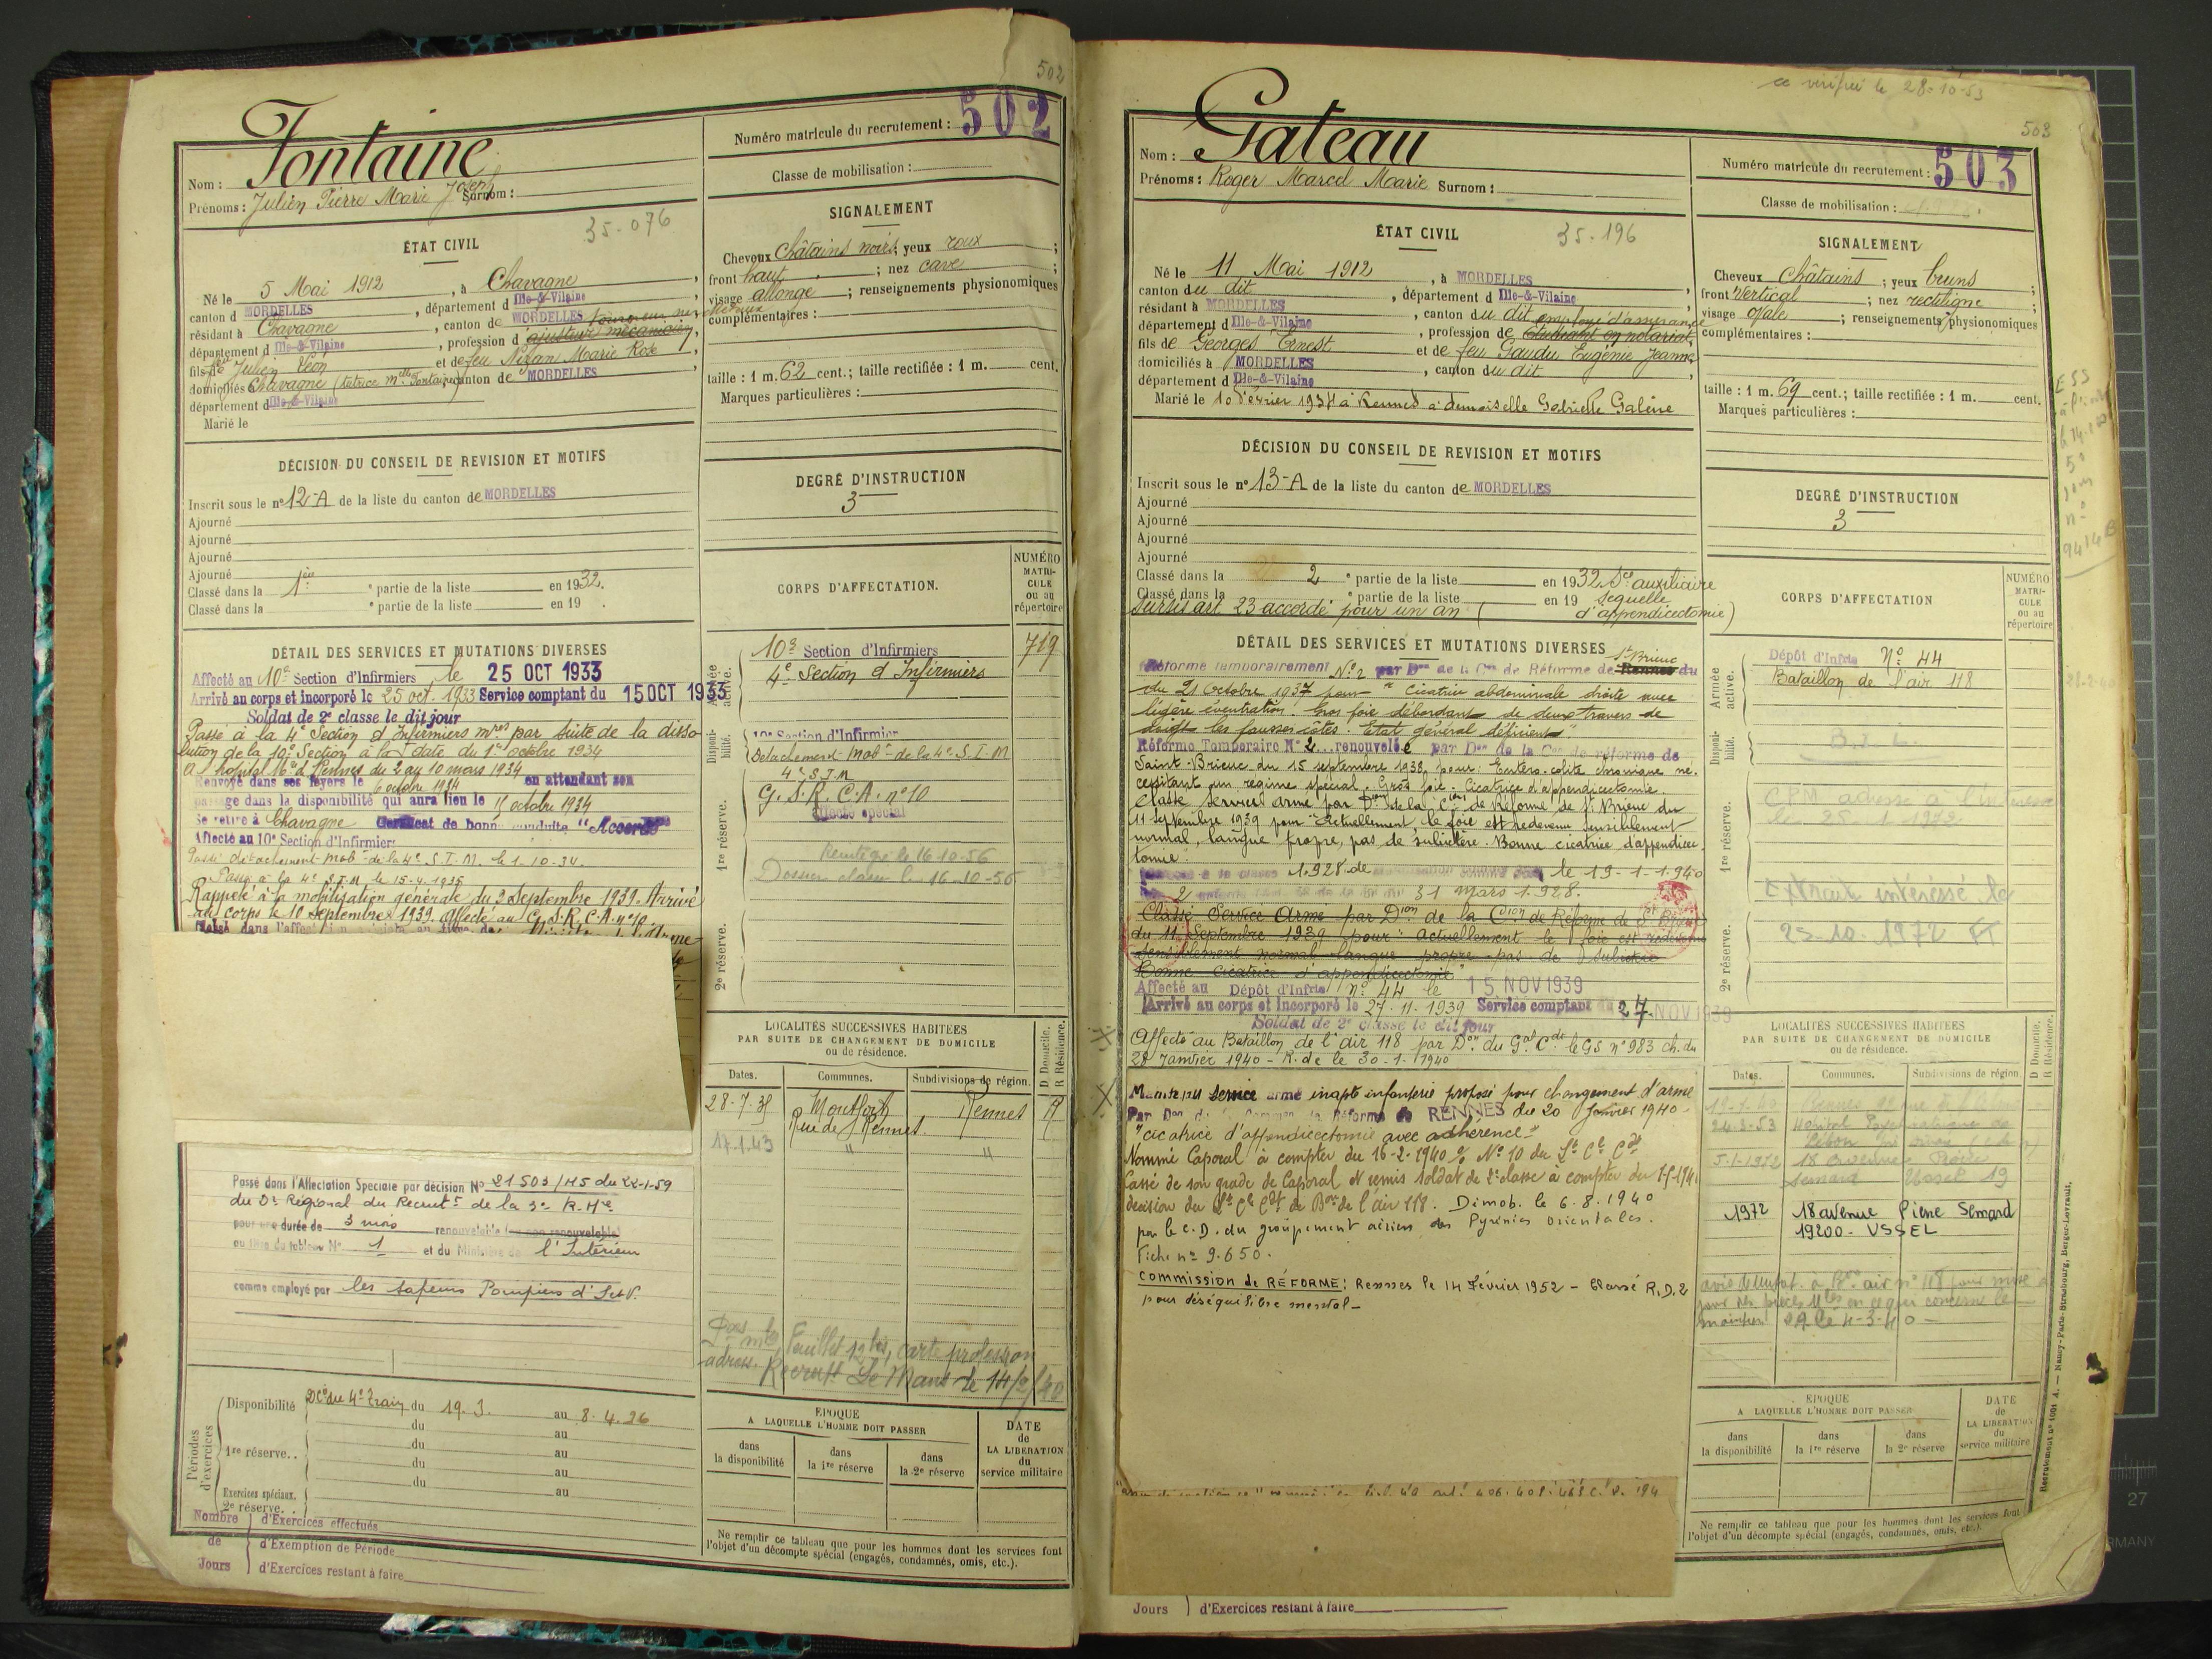 502
Nom : Fontaine
Prénoms : Julien Pierre Marie Joseph Surnom :
Numéro matricule du recrutement : 502
Classe de mobilisation :
35-076
ÉTAT CIVIL
Né le 5 Mai 1912, à Chavagne,
canton d MORDELLES, département d Ille-&-Vilaine,
résidant à Chavagne, canton de MORDELLES
département d Ille-&-Vilaine, profession d'ajusteur mécanicien,
fils de feu Julien Léon et de feu Nizan Marie Rose,
domiciliés Chavagne (tutrice Mlle Fontaine) canton de MORDELLES
département d Ille-&-Vilaine
Marié le
SIGNALEMENT
Cheveux Châtains noirs; yeux roux;
front haut; nez cave;
visage allongé; renseignements physionomiques
complémentaires :
taille : 1 m. 62 cent.; taille rectifiée : 1 m. cent.
Marques particulières :
DÉCISION DU CONSEIL DE REVISION ET MOTIFS
Inscrit sous le n° 12-A de la liste du canton de MORDELLES
Ajourné
Ajourné
Ajourné
Ajourné
Classé dans la 1ère partie de la liste en 1932.
Classé dans la e partie de la liste en 19 .
DEGRÉ D'INSTRUCTION
3
CORPS D'AFFECTATION.
NUMÉRO MATRICULE ou au répertoire
Armée active.
10e Section d'Infirmiers 719
4e Section d'Infirmiers
Disponibilité.
10e Section d'Infirmier
Détachement mobre de la 4e S.I.M
4e S.I.M
1re réserve.
G.S.R.C.A. n° 10
Affecté spécial
Réintégré le 16-10-56
Dossier classé le 16-10-56
2e réserve.
DÉTAIL DES SERVICES ET MUTATIONS DIVERSES
Affecté au 10e Section d'Infirmiers le 25 OCT 1933
Arrivé au corps et incorporé le 25 oct. 1933 Service comptant du 15 OCT 1933
Soldat de 2e classe le dit jour
Passé à la 4e Section d'Infirmiers mres par suite de la disso
lution de la 10e Section à la date du 1er octobre 1934
A l'hôpital Mre d Rennes du 2 au 10 mars 1934
Renvoyé dans ses foyers le 6 octobre 1934 en attendant son
passage dans la disponibilité qui aura lieu le 15 octobre 1934
Se retire à Chavagne Certificat de bonne conduite "Accordé"
Affecté au 10e Section d'Infirmiers
Passé détachement mobre de la 4e S.I.M. le 1-10-34.
Passé à la 4e S.I.M le 15-4-1935
Rappelé à la mobilisation générale du 2 Septembre 1939. Arrivé
au corps le 10 septembre 1939. affecté au G.S.R.C.A. n° 10.
Passé dans l'Affectation Spéciale par décision N° 21503/145 du 22-1-59
du Dr Régional du Recrutt de la 3e R. Mre
pour une durée de 3 mois renouvelable (ou non renouvelable)
au titre du tableau N° 1 et du Ministère de l'Intérieur
comme employé par les sapeurs Pompiers d'I.et.V.
LOCALITÉS SUCCESSIVES HABITÉES
PAR SUITE DE CHANGEMENT DE DOMICILE
ou de résidence.
D Domicile. R Résidence.
Dates. Communes. Subdivisions de région.
28-7-35 Montfort Rennes R
Rue de Rennes
17.1.43 " "
Feuillet 12bis, carte profession
adress. Recrutt Le Mans le 14/2/40
Périodes d'exercices
Disponibilité du 19.3. au 8.4.36
du au
1re réserve.. du au
du au
du au
Exercices spéciaux. au
2e réserve. .
Nombre d'Exercices effectués
de d'Exemption de Période
Jours d'Exercices restant à faire
ÉPOQUE
A LAQUELLE L'HOMME DOIT PASSER
dans la disponibilité
dans la 1re réserve
dans la 2e réserve
DATE de LA LIBÉRATION du service militaire
Ne remplir ce tableau que pour les hommes dont les services font
l'objet d'un décompte spécial (engagés, condamnés, omis, etc.).
ce vérifié le 28-10-53
503
Nom : Gateau
Prénoms : Roger Marcel Marie Surnom :
Numéro matricule du recrutement : 503
Classe de mobilisation :
35-196
ÉTAT CIVIL
Né le 11 Mai 1912, à MORDELLES,
canton du dit, département d Ille-&-Vilaine,
résidant à MORDELLES, canton du dit employé d'assurance
département d Ille-&-Vilaine, profession de étudiant en notariat,
fils de Georges Ernest et de feu Gaudu Eugénie Jeanne,
domiciliés à MORDELLES, canton du dit,
département d Ille-&-Vilaine
Marié le 10 février 1934 à Rennes à demoiselle Gabrielle Galène
SIGNALEMENT
Cheveux Châtains; yeux bruns;
front Vertical; nez rectiligne;
visage ovale; renseignements physionomiques
complémentaires :
taille : 1 m. 69 cent.; taille rectifiée : 1 m. cent.
Marques particulières :
DÉCISION DU CONSEIL DE REVISION ET MOTIFS
Inscrit sous le n° 13-A de la liste du canton de MORDELLES
Ajourné
Ajourné
Ajourné
Ajourné
Classé dans la 2e partie de la liste en 1932 Sce auxiliaire
Classé dans la e partie de la liste en 19 séquelle
Sursis art 23 accordé pour un an ( d'appendicectomie)
DEGRÉ D'INSTRUCTION
3
CORPS D'AFFECTATION
NUMÉRO MATRICULE ou au répertoire
Armée active.
Dépôt d'Infrie N° 44
Bataillon de l'air 118
Disponibilité.
B.I.L.
1re réserve.
le 25-1-1972
Extrait intéressé le
2e réserve.
23-10-1972 FT
DÉTAIL DES SERVICES ET MUTATIONS DIVERSES
Réformé temporairement N° 2 par Don de la Con de Réforme de Rennes St Brieuc du
du 21 Octobre 1937 pour "Cicatrice abdominale droite avec
légère éventration. Gros foie débordant de deux travers de
doigt les fausses côtes. Etat général déficient"
Réforme Temporaire N° 2 renouvelée par Don de la Con de réforme de
Saint-Brieuc du 15 septembre 1938 pour : Entéro-colite chronique né-
cessitant un régime spécial. Gros foie. Cicatrice d'appendicectomie.
Classé service armé par Don de la Con de Réforme de St Brieuc du
11 septembre 1939 pour "Actuellement le foie est redevenu sensiblement
normal, langue propre, pas de subictère. Bonne cicatrice d'appendicec
tomie.
1.928 de le 19-1-1940
2 31 Mars 1.928.
Classé Service Armé par Dion de la Cion de Réforme de St Brieuc
du 11 Septembre 1939 pour : actuellement le foie est redevenu
sensiblement normal langue propre pas de subictère
Bonne Cicatrice d'appendicectomie"
Affecté au Dépôt d'Infrie n° 44 le 15 NOV 1939
Arrivé au corps et incorporé le 27-11-1939 Service comptant du 27 NOV 1939
Soldat de 2e classe le dit jour
Affecté au Bataillon de l'air 118 par Don du Gal Cdt le GS n° 983 ch. du
28 Janvier 1940 - R. de le 30-1-1940
Maintenu service armé inapte infanterie proposé pour changement d'arme
Par Don de la Common de Réforme de RENNES du 20 Janvier 1940-
"cicatrice d'appendicectomie avec adhérence"
Nommé Caporal à compter du 16-2-1940 % N° 10 du Lt Cl Cdt
Cassé de son grade de Caporal et remis soldat de 2e classe à compter du
décision du Lt Cl Cdt de Bon de l'air 118. Dimob. le 6.8.1940
par le C.D. du groupement aérien des Pyrénées Orientales.
Fiche n° 9.650.
COMMISSION de RÉFORME : Rennes le 14 Février 1952 - Classé R.D.2
pour déséquilibre mental-
LOCALITÉS SUCCESSIVES HABITÉES
PAR SUITE DE CHANGEMENT DE DOMICILE
ou de résidence.
D Domicile. R Résidence.
Dates. Communes. Subdivisions de région
24-3-53 Hôpital Psychiatrique de
5-1-1972 18 avenue Pierre
Semard Ussel 19
1972 18 avenue Pierre Semard
19200 - USSEL
ÉPOQUE
A LAQUELLE L'HOMME DOIT PASSER
dans la disponibilité
dans la 1re réserve
dans la 2e réserve
DATE de LA LIBÉRATION du service militaire
Ne remplir ce tableau que pour les hommes dont les services font
l'objet d'un décompte spécial (engagés, condamnés, omis, etc.).
Jours d'Exercices restant à faire
Recrutement n° 1001 A. — Nancy-Paris-Strasbourg, Berger-Levrault.
27